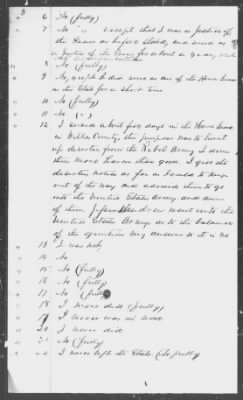 6 No (fully)
7 No " except that I was a Justice of
the Peace as before stated, and acted as
a Justice of the Peace for about a year, under
8 No (fully)
9 No, except I did serve as one of the Home Guard
in this State for a short time
10 No (fully)
11 No (")
12 I served about five days in the Home Guard
in County, the purpose was to hunt
up deserters from the Rebel Army I done
them more harm than good I give the
deserters notice as far as I could to keep
out of the way and advised them to go
into the United States Army and one
of them, went into the
United States Army, as to the balance
of the question my answer to it is No
13 I was not
14 No
15 No (fully)
16 No (fully)
17 No (fully)
18 I never did (fully)
19 I never was in one
20 I never did
21 No (fully)
I never left the State (So fully